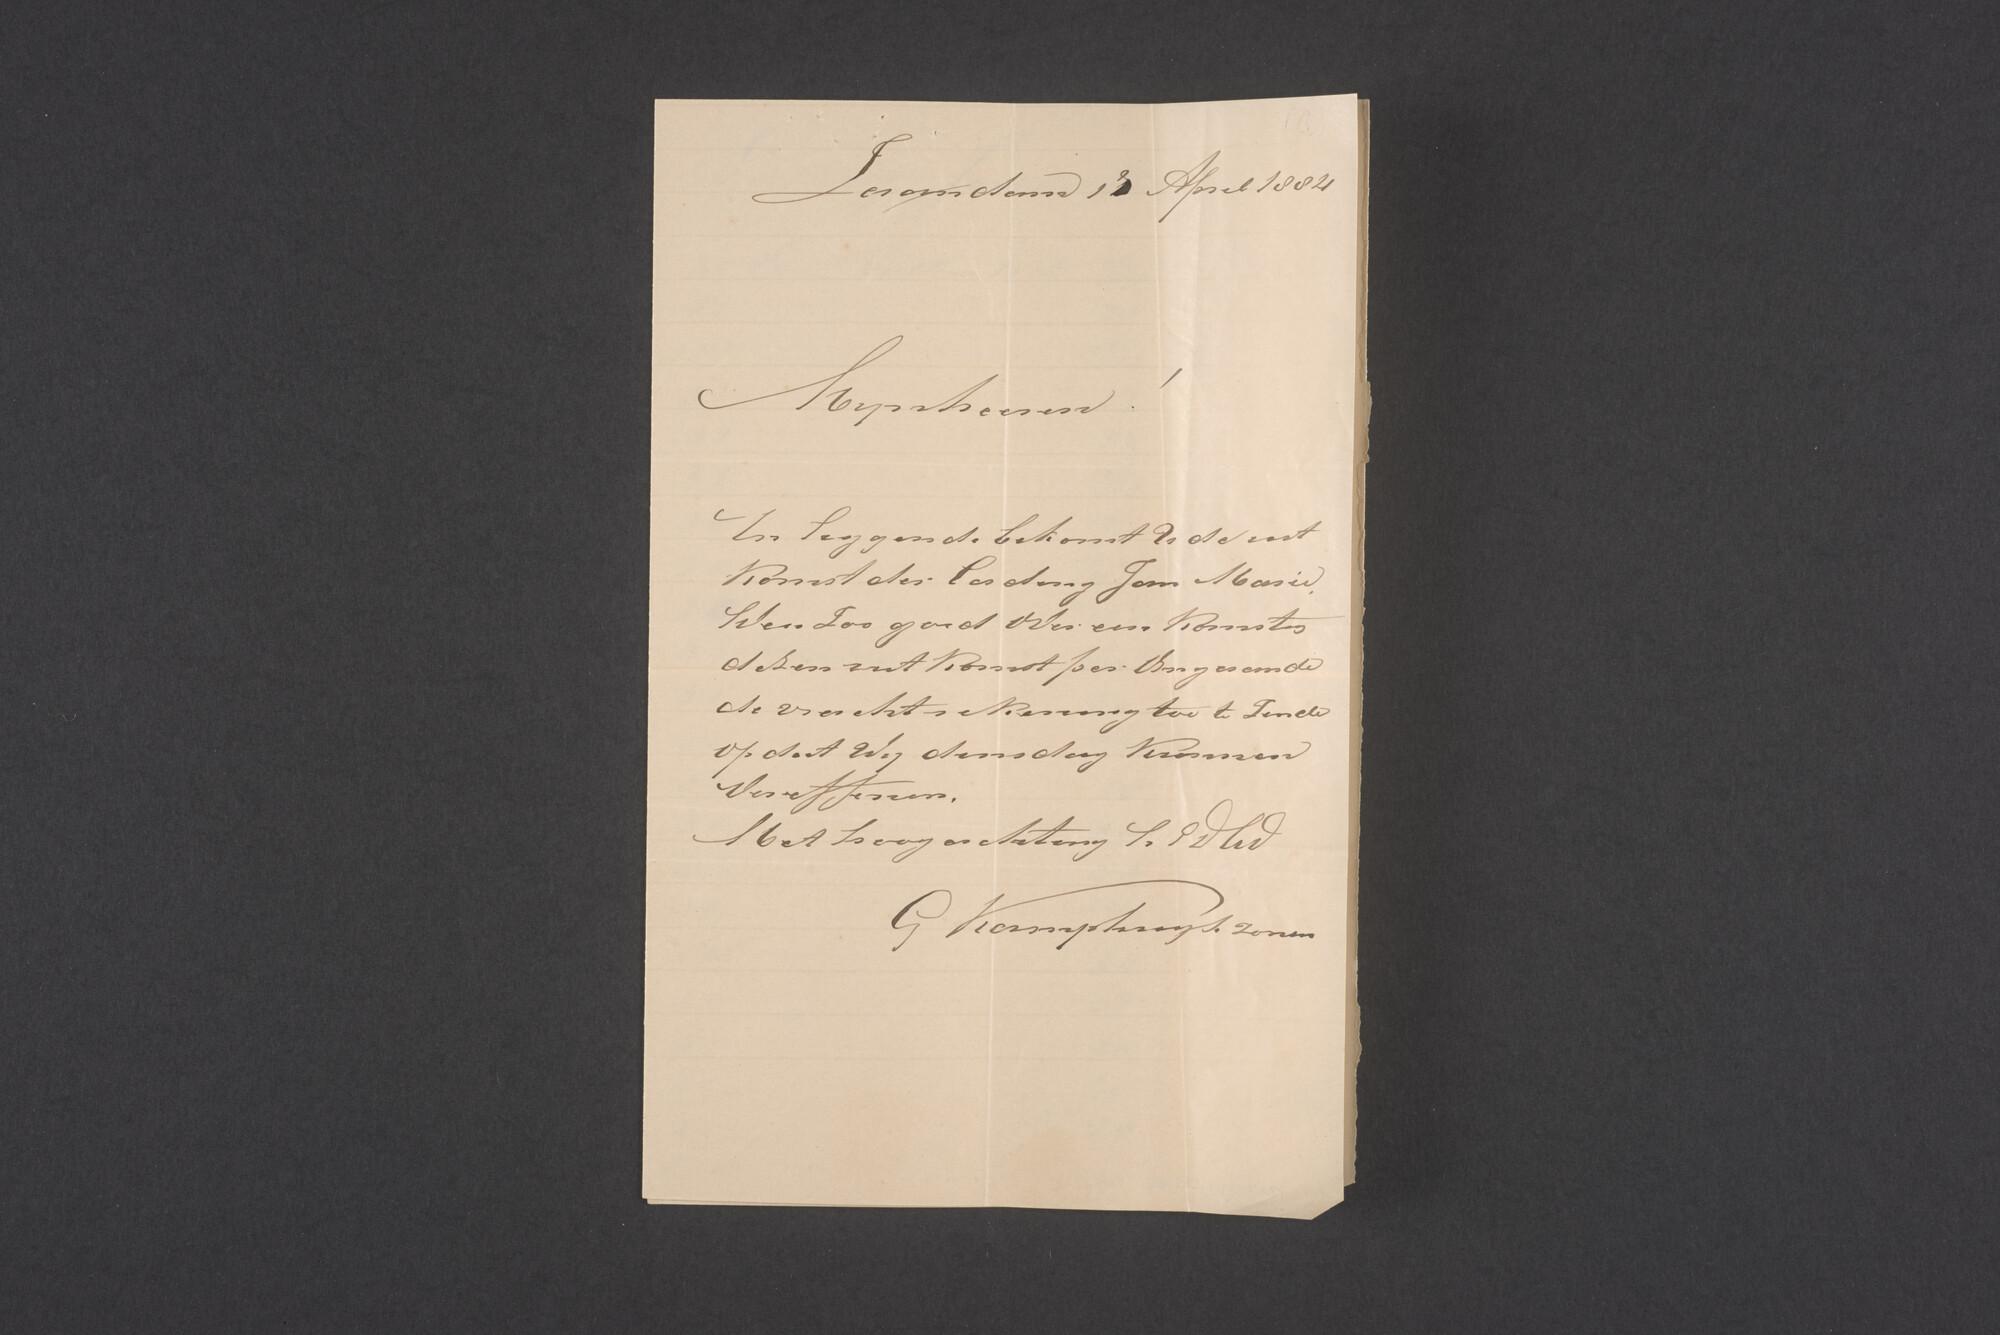 Zaandam 12 April 1884
Mynheeren!
In leggende bekomt U de uit
komst der lading Jan Marie,
Wen Zoo goed Over een komstig
dezen uit komst per Omgaande
de vracht rekening toe te Zende
op dat Wy dinsdag kunnen
Vereffenen.
Met hoogachting
G Kamphuys zonen